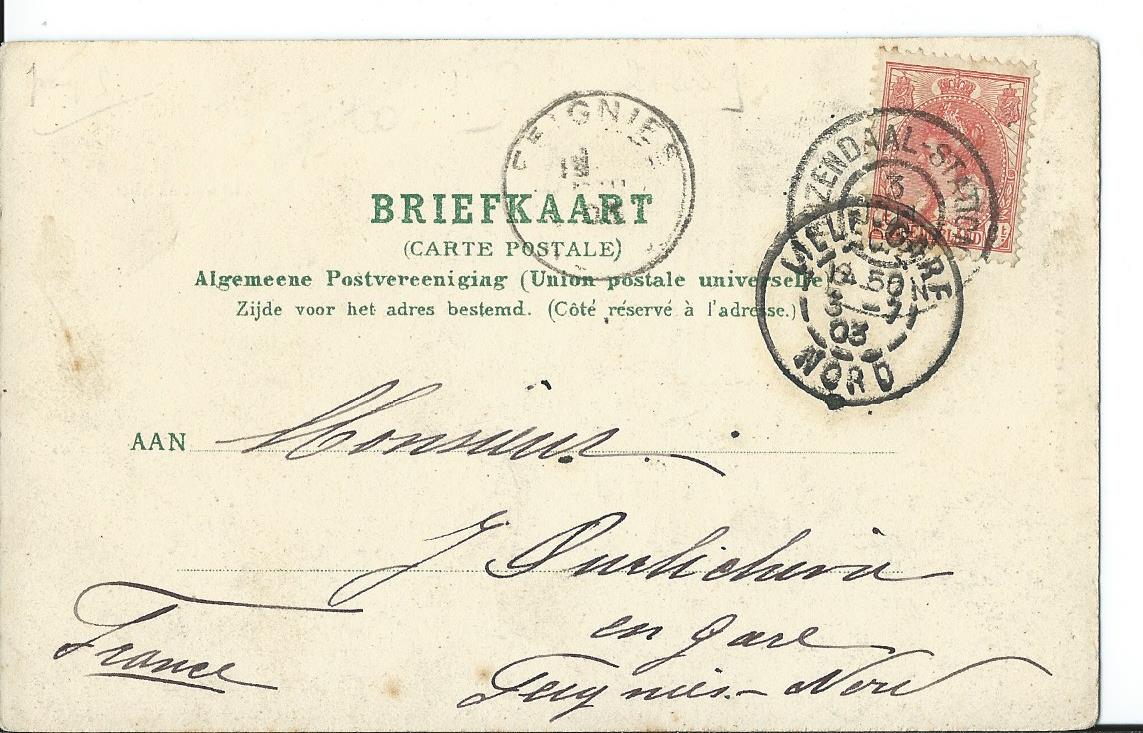 FEIGNIES
ZENDAAL-STATION
3
BRIEFKAART
(CARTE POSTALE)
GARE
Algemeene Postvereeniging (Union postale universelle)
50
Zijde voor het adres bestemd. (Côté réservé à l'adresse.)
3 - 7
03
NORD
AAN Monsieur
J
en gare
France
Feignies - Nord